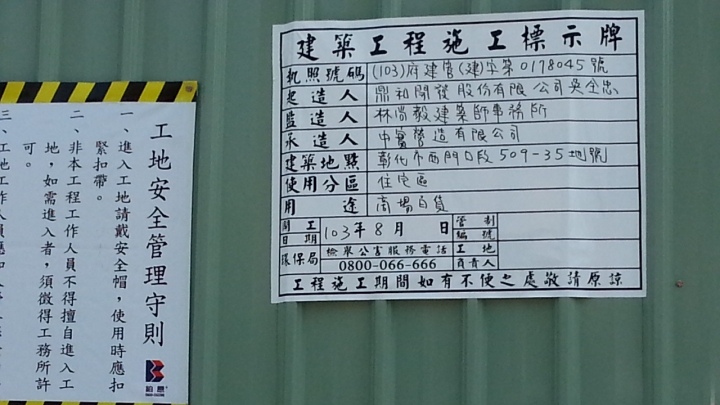 建築工程施工標示牌
執照號碼 (103)府建管(建)字第0178045號
起造人 鼎和開發股份有限公司吳全忠
監造人 林尚毅建築師事務所
承造人 中奮營造有限公司
建築地點 彰化市西門口段509-35地號
使用分區 住宅區
用途 商場自貨
開工日期 103年8月 日 管制編號
環保局 檢舉公害服務電話 0800-066-666 工地負責人
工程施工期間如有不便之處敬請原諒
工地安全管理守則
一、進入工地請戴安全帽，使用時應扣
緊扣帶。
二、非本工程工作人員不得擅自進入工
地，如需進入者，須徵得工務所許
可。
三、工地工作人員應